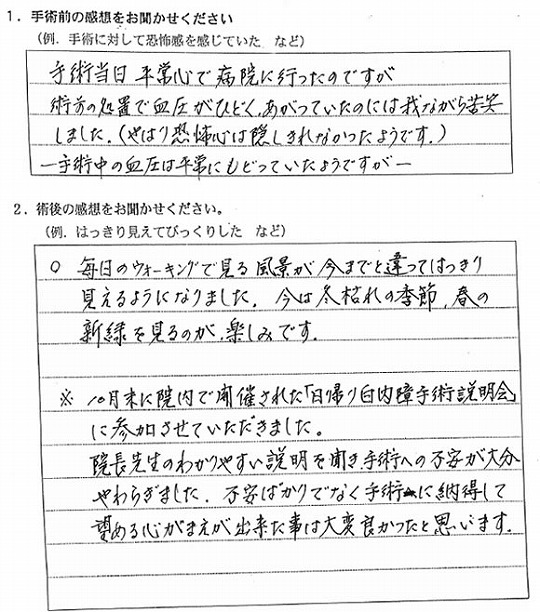 1．手術前の感想をお聞かせください
（例．手術に対して恐怖感を感じていた　など）
手術当日 平常心で病院に行ったのですが
術前の処置で血圧がひどく、あがっていたのには我ながら苦笑
しました．（やはり恐怖心は隠しきれなかったようです．）
―手術中の血圧は平常にもどっていたようですが―
2．術後の感想をお聞かせください。
（例．はっきり見えてびっくりした　など）
○ 毎日のウォーキングで見る風景が今までと違ってはっきり
見えるようになりました．今は冬枯れの季節、春の
新緑を見るのが、楽しみです．
※ 10月末に院内で開催された「日帰り白内障手術説明会」
に参加させていただきました。
院長先生のわかりやすい説明を聞き、手術への不安が大分
やわらぎました．不安ばかりでなく手術に納得して
望める心がまえが出来た事は大変良かったと思います．